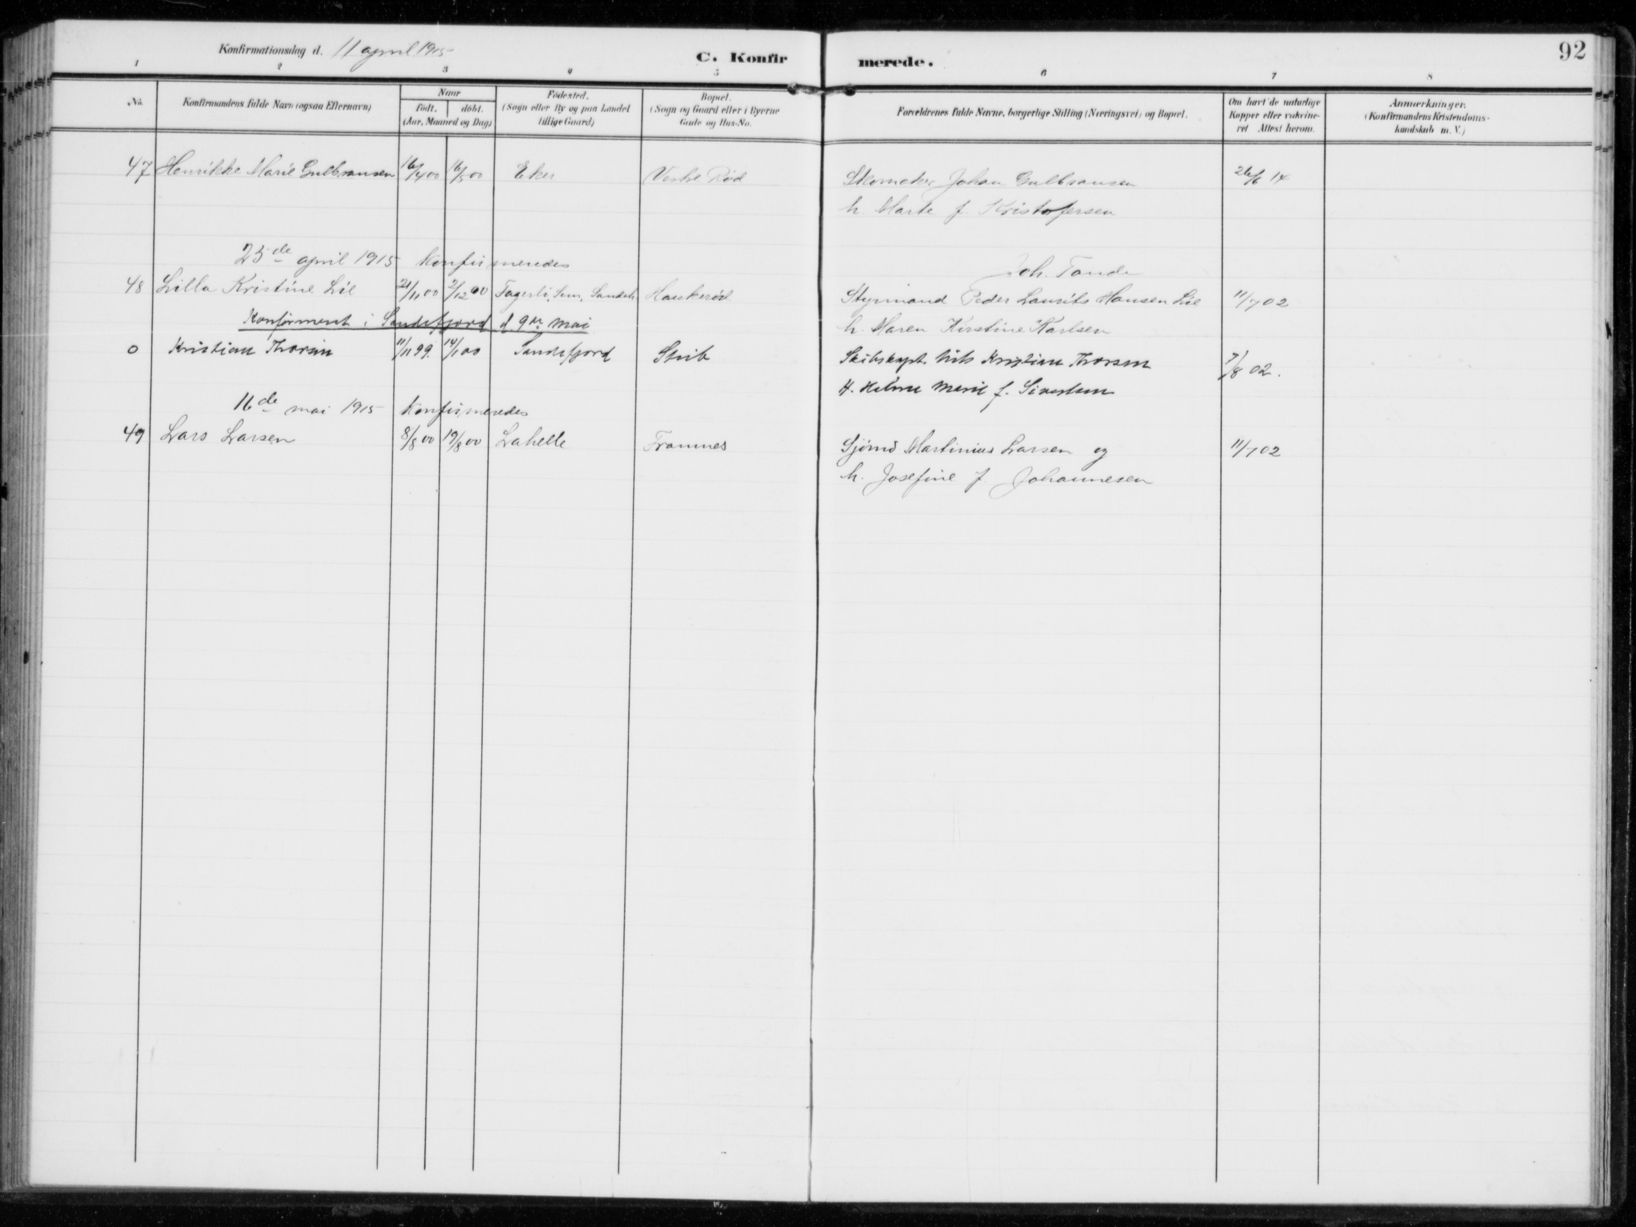 Konfirmationsdag d. 11 april 1915
C. Konfirmerede.
92
1 2 3 4 5 6 7 8
No.
Konfirmandens fulde Navn (ogsaa Efternavn)
Naar
født. døbt.
(Aar, Maaned og Dag)
Fødested.
(Sogn eller By og paa Landet
tillige Gaard)
Bopæl.
(Sogn og Gaard eller i Byerne
Gade og Hus-No.
Forældrenes fulde Navne, borgerlige Stilling (Næringsvei) og Bopæl.
Om havt de naturlige
Kopper eller vakcine-
ret Attest herom.
Anmerkninger.
(Konfirmandens Kristendoms-
kundskab m. V.)
47 Henrikke Marie Gulbransen 16/4 00 16/5 00 Eker Vestre Rød Skomaker Johan Gulbransen 26/6 14
h Marte f Kristofersen
25de april 1915 konfirmeredes
Joh. Tande
48 Lilla Kristine Lie 21/11 00 2/12 00 Fagerli, Sem, Sandeh. Haukerød Styrmand Peder Laurits Hansen Lie 11/7 02
h. Maren Kirstine Karlsen
Konfirmeret i Sandefjord d 9de mai
0 Kristian Thorsen 11/11 99. 14/1 00 Sandefjord Strib Skibskapt. Nils Kristian Thorsen 7/8 02.
H. Helene Marie f. Sivertsen
16de mai 1915 konfirmeredes
49 Lars Larsen 8/8 00 19/8 00 Lahelle Framnes Sjømd Martinius Larsen og 11/7 02
h. Josefine f Johannesen